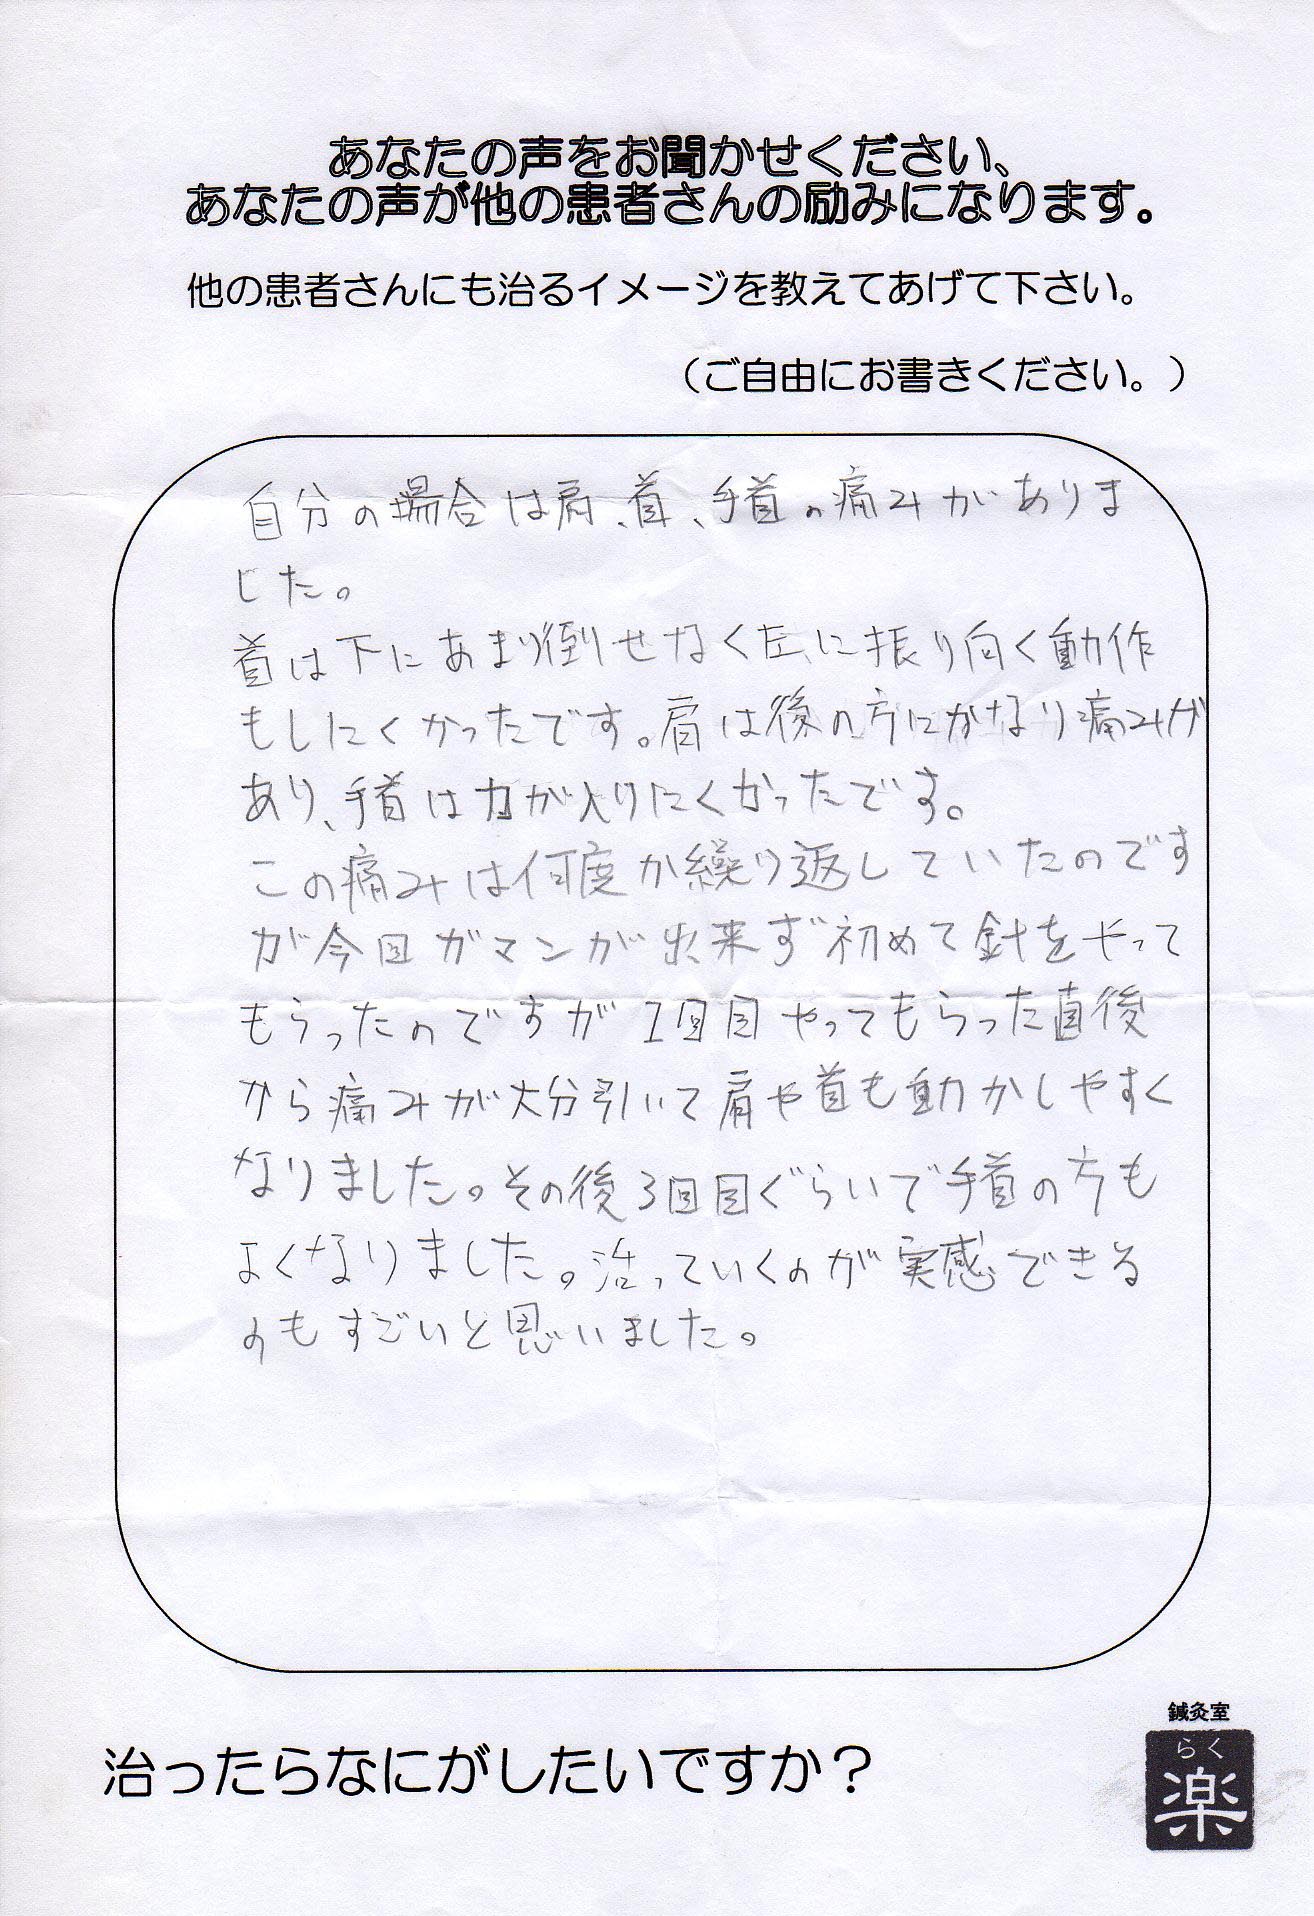 あなたの声をお聞かせください、
あなたの声が他の患者さんの励みになります。
他の患者さんにも治るイメージを教えてあげて下さい。
（ご自由にお書きください。）
自分の場合は肩、首、手首の痛みがありま
した。
首は下にあまり倒せなく左に振り向く動作
もしにくかったです。肩は後の方にかなり痛みが
あり、手首は力が入りにくかったです。
この痛みは何度か繰り返していたのです
が今回ガマンが出来ず初めて針をやって
もらったのですが1回目やってもらった直後
から痛みが大分引いて肩や首も動かしやすく
なりました。その後3回目ぐらいで手首の方も
よくなりました。治っていくのが実感できる
のもすごいと思いました。
治ったらなにがしたいですか？
鍼灸室
らく
楽